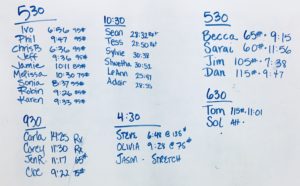 530
Ivo 6:56 55#
Phil 9:47 95#
Chris B 6:36 95#
Jeff 9:36 55#
Jamie 10:11 85#
Melissa 10:30 75#
Sonia 8:37 55#
Robin 9:26 65#
Karen 9:35 55#
10:30
Sean 28:32
Tess 21:50
Sylvie 30:38
Shwetha 30:51
LeAnn 25:47
Adair 28:35
530
Becca 65# • 9:15
Sarai 60# • 11:56
Jim 105# • 7:38
Dan 115# • 9:47
630
Tom 115# • 11:01
Sol
930
Carla 14:25 Rx
Corey 11:30 Rx
Jen R 11:17 65#
Cloe 9:22 75#
4:30
Steve 6:48 @ 135#
OLIVIA 9:28 @ 75#
JASON - STRETCH